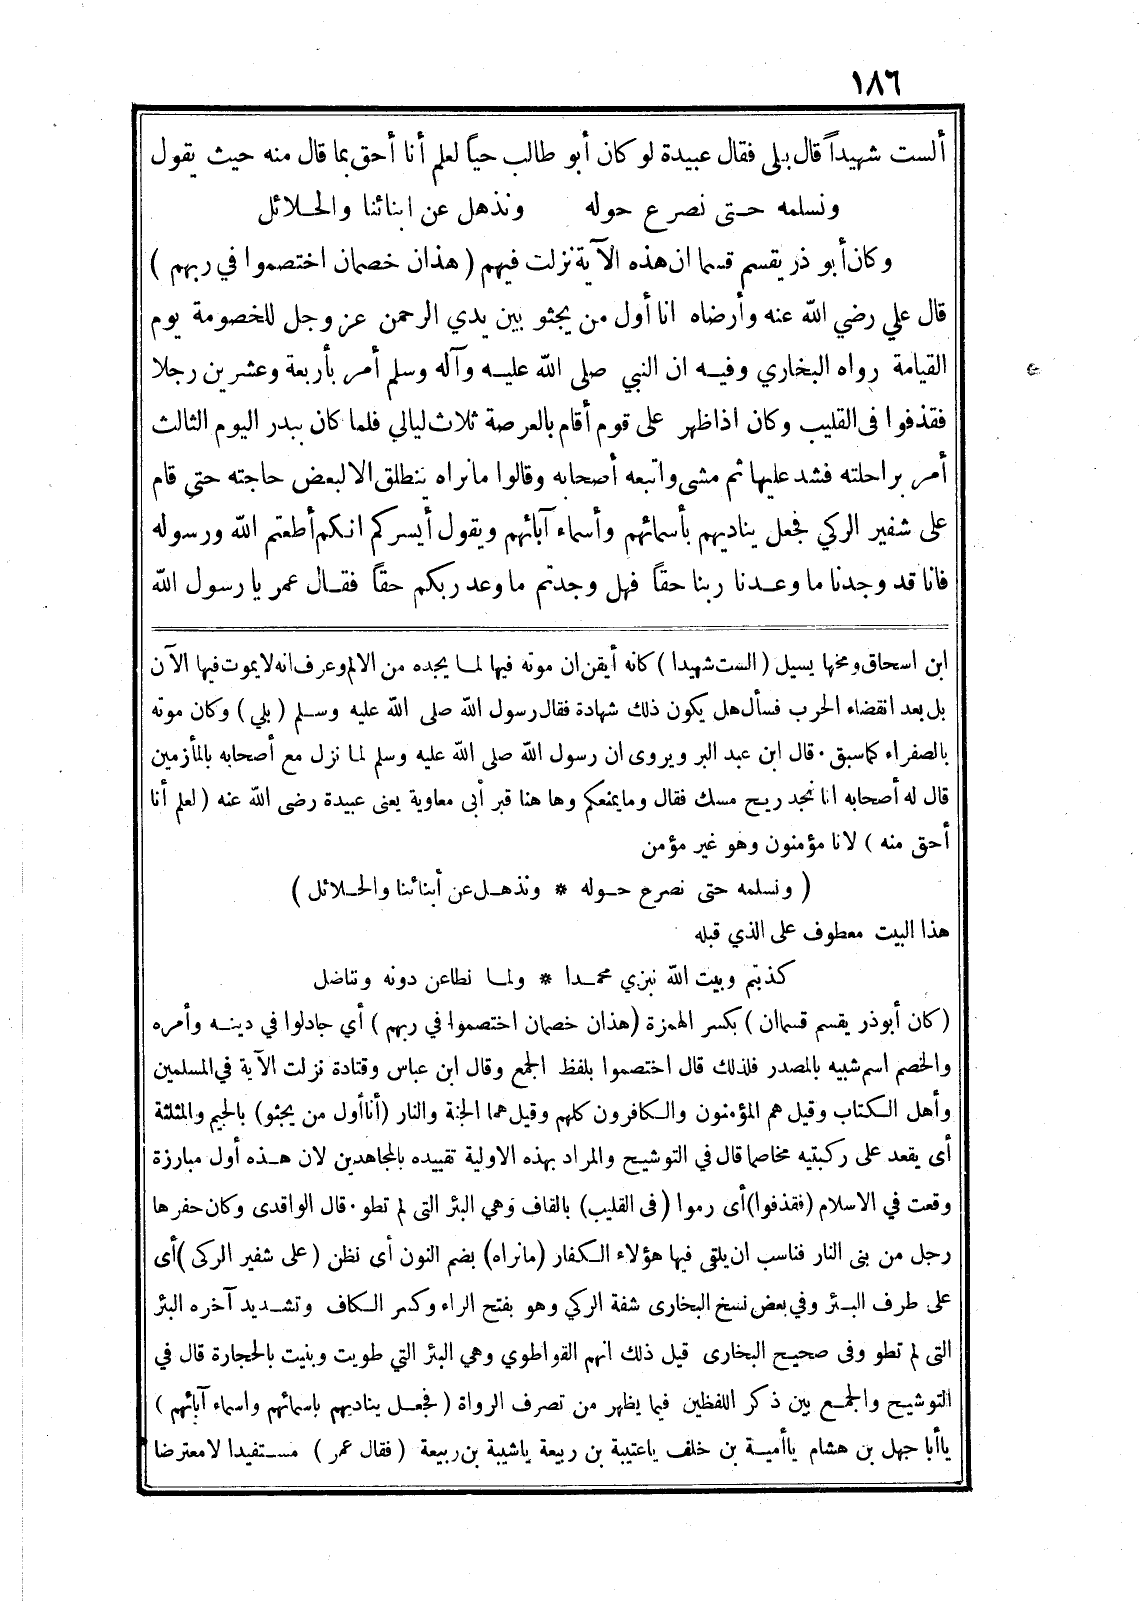 ١٨٦
ألست شهيداً قال بلى فقال عبيدة لو كان أبو طالب حياً لعلم أنا أحق بما قال منه حيث يقول
ونسلمه حـتى نصرع حوله ونذهل عن ابنائنا والحـلائل
وكان أبو ذر يقسم قسما ان هذه الآية نزلت فيهم ( هذان خصمان اختصموا في ربهم )
قال علي رضي الله عنه وأرضاه انا أول من يجثو بين يدي الرحمن عز وجل للخصومة يوم
القيامة رواه البخاري وفيـه ان النبي صلى الله عليـه وآله وسلم أمر بأربعة وعشرين رجلا
فقذفوا فى القليب وكان اذا ظهر على قوم أقام بالعرصة ثلاث ليالي فلما كان ببدر اليوم الثالث
أمر براحلته فشد عليها ثم مشى واتبعه أصحابه وقالوا ما نراه ينطلق الا لبعض حاجته حتى قام
على شفير الركي فجعل يناديهم بأسمائهم وأسماء آبائهم ويقول أيسركم انكم أطعتم الله ورسوله
فانا قد وجدنا ما وعـدنا ربنا حقاً فهل وجدتم ما وعد ربكم حقاً فقـال عمر يا رسول الله
ابن اسحاق ومخها يسيل ( الست شهيدا ) كانه أيقن ان موته فيها لمـا يجده من الالم وعرف انه لا يموت فيها الآن
بل بعد انقضاء الحرب فسأل هل يكون ذلك شهادة فقال رسول الله صلى الله عليه وسـلم ( بلي ) وكان موته
بالصفراء كما سبق ٠ قال ابن عبد البر ويروى ان رسول الله صلى الله عليه وسلم لما نزل مع أصحابه بالمأزمين
قال له أصحابه انا نجد ريـح مسك فقال وما يمنعكم وها هنا قبر أبى معاوية يعنى عبيدة رضى الله عنه ( لعلم أنا
أحق منه ) لانا مؤمنون وهو غير مؤمن
( ونسلمه حتى نصرع حـوله * ونذهـل عن أبنائنا والحـلائل )
هذا البيت معطوف على الذي قبله
كذبتم وبيت الله نبزي محمـدا * ولمـا نطاعن دونه ونناضل
( كان أبوذر يقسم قسما ان ) بكسر الهمزة ( هذان خصمان اختصموا في ربهم ) أي جادلوا في دينـه وأمره
والخصم اسم شبيه بالمصدر فلذلك قال اختصموا بلفظ الجمع وقال ابن عباس وقتادة نزلت الآية في المسلمين
وأهل الـكتاب وقيل هم المؤمنون والـكافرون كلهم وقيل هما الجنة والنار ( أنا أول من يجثو ) بالجيم والمثلثة
أى يقعد على ركبتيه مخاصما قال في التوشيح والمراد بهذه الاولية تقييده بالمجاهدين لان هـذه أول مبارزة
وقعت في الاسلام ( فقذفوا ) أى رموا ( فى القليب ) بالقاف وهي البئر التى لم تطو ٠ قال الواقدى وكان حفرها
رجل من بنى النار فناسب ان يلقى فيها هؤلاء الـكفار ( ما نراه ) بضم النون أى نظن ( على شفير الركى ) أى
على طرف البـئر وفي بعض نسخ البخارى شفة الركي وهو بفتح الراء وكسر الـكاف وتشـديد آخره البئر
التى لم تطو وفى صحيح البخارى قيل ذلك انهم القوا طوي وهي البئر التي طويت وبنيت بالحجارة قال في
التوشيح والجمـع بين ذكر اللفظين فيما يظهر من تصرف الرواة ( فجعـل يناديهم باسمائهم واسماء آبائهم )
يا أبا جهل بن هشام يا أميـة بن خلف يا عتيبة بن ربيعة يا شيبة بن ربيعة ( فقال عمر ) مسـتفيدا لا معترضا